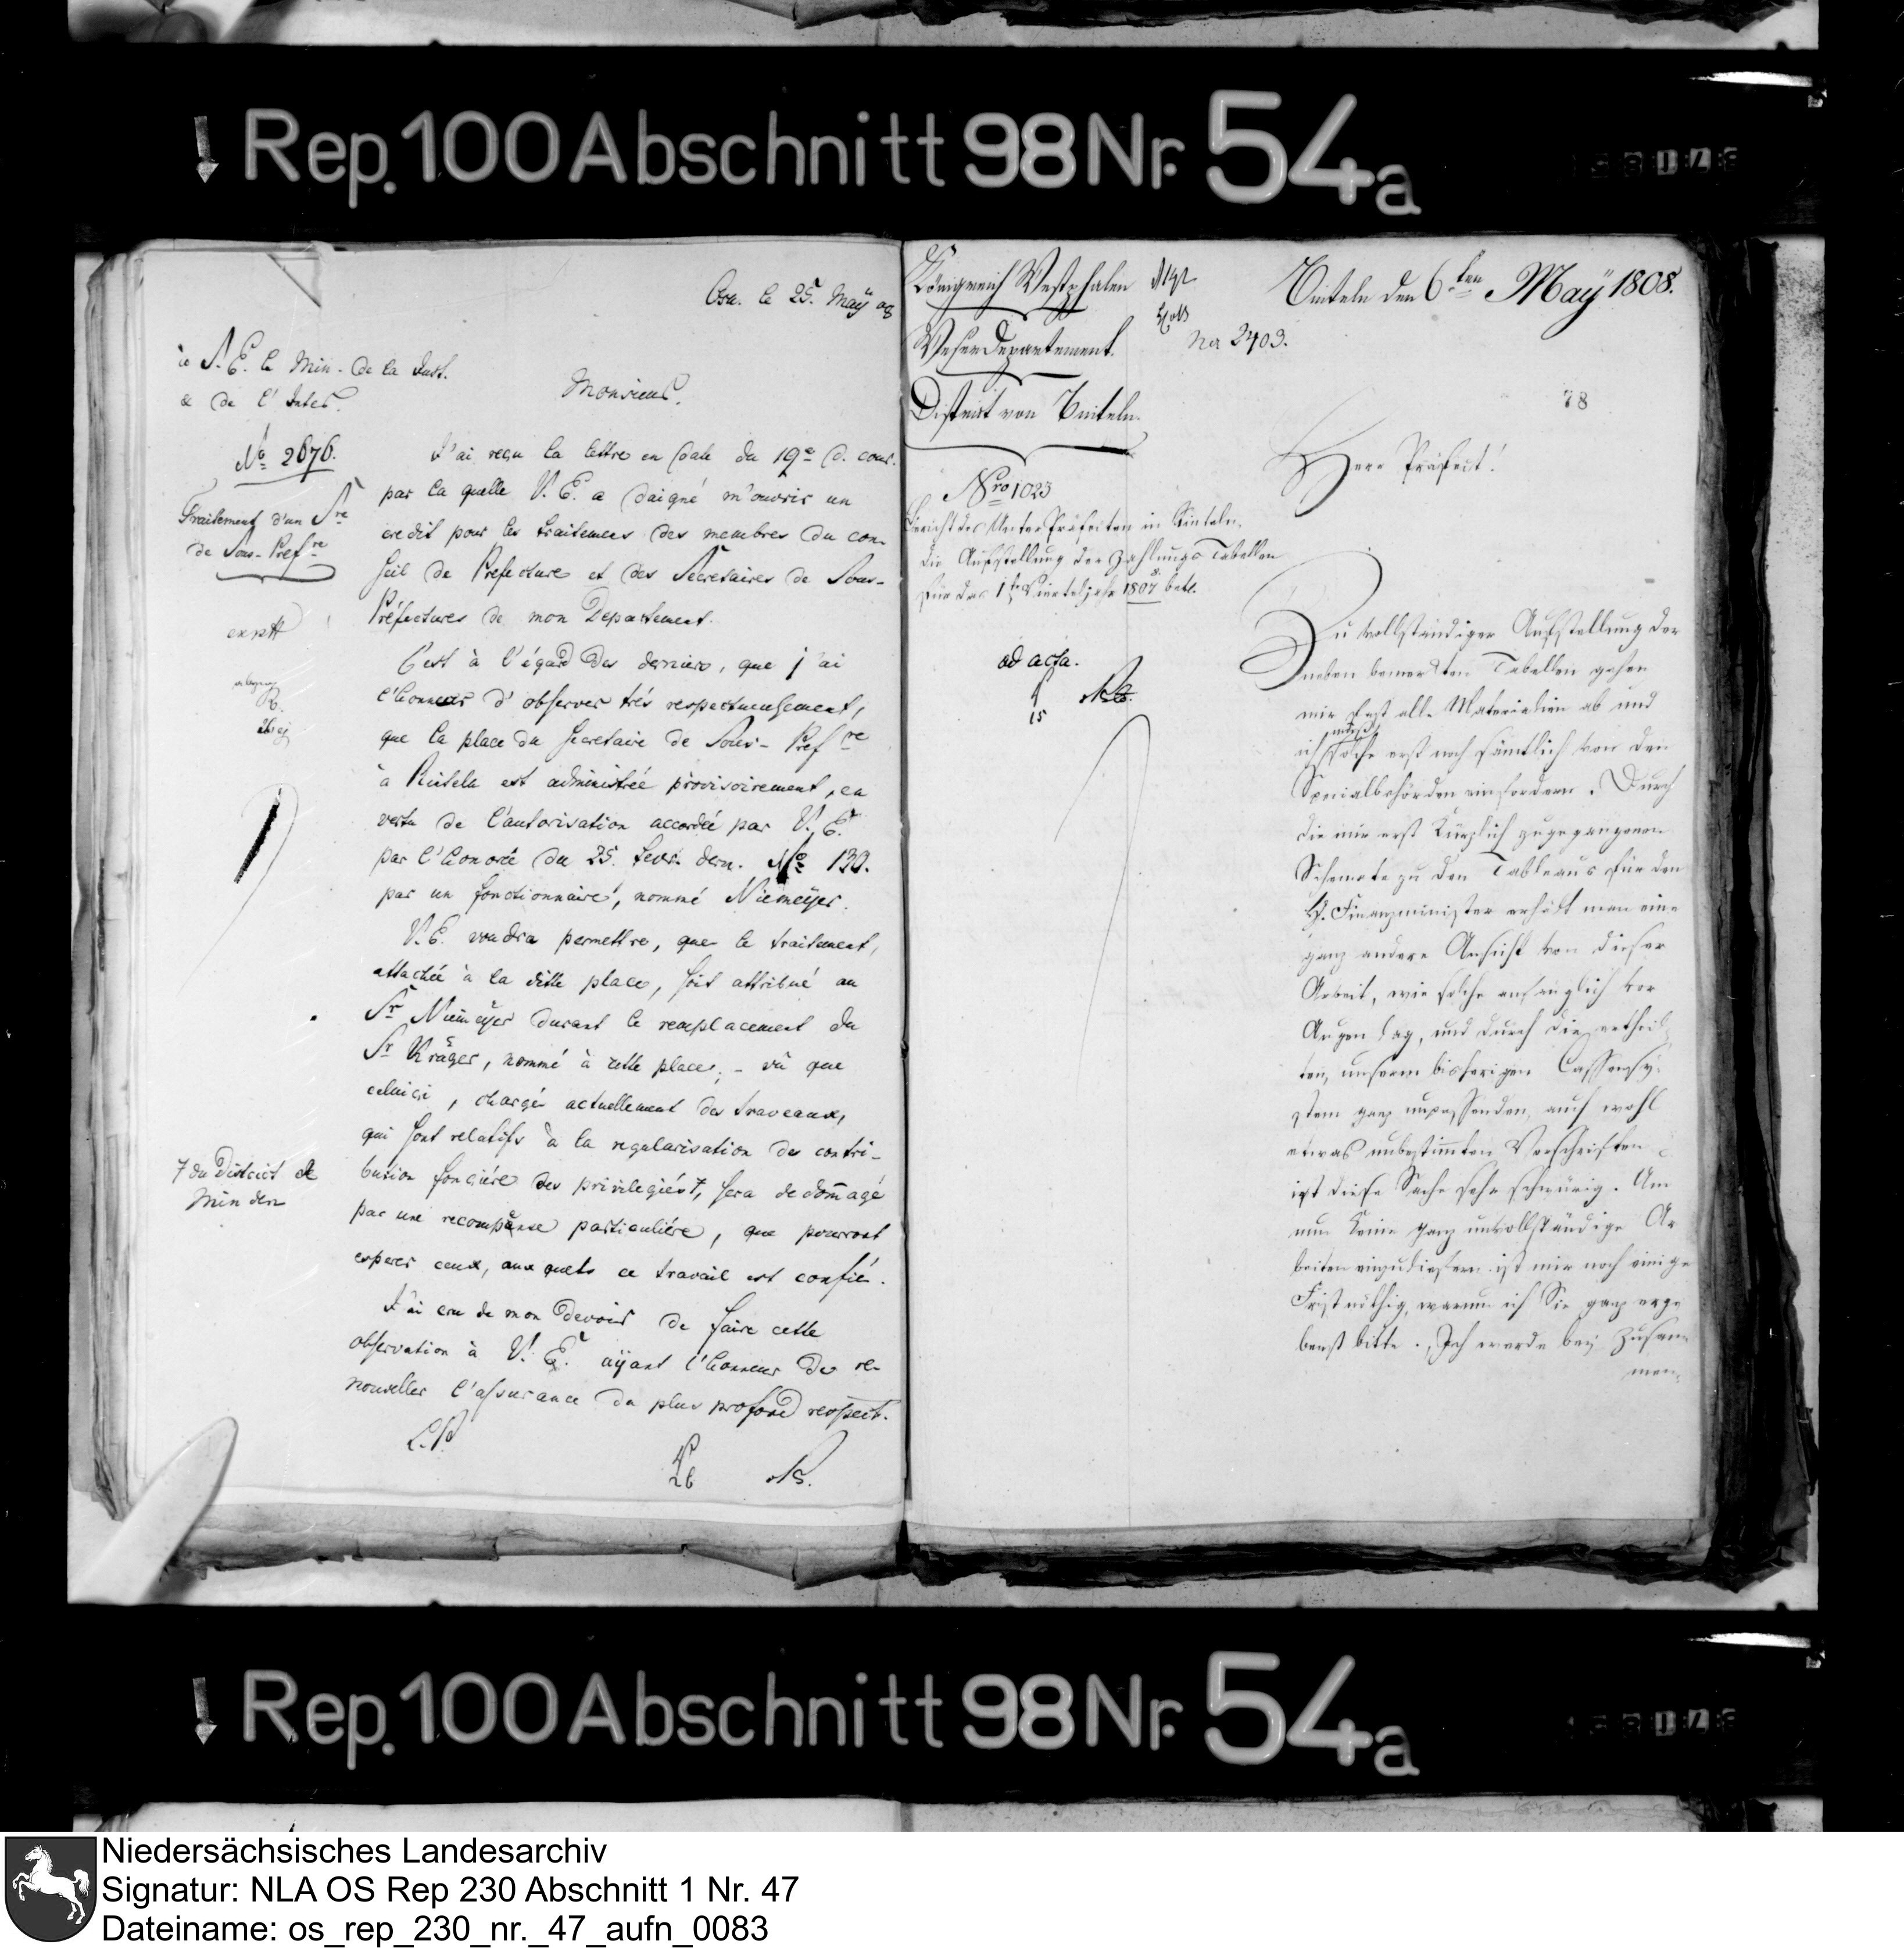 Rep. 100 Abschnitt 98 Nr. 54a
Osn. le 25. Maÿ 08
à S. E. le Min. de la Just.
& de l'Inter.
Monsieur.
No 2676.
Traitement d'un Sre
de Sous-Prefre
J'ai reçu la lettre en date du 19e d. cour.
par la quelle V. E. a daigné m'ouvrir un
credit pour les traitemens des membres du con-
seil de Prefecture et des Secretaires de Sous-
Préfectures de mon Departement.
C'est à l'égard des derniers, que j'ai
l'honneur d'observer trés respectueusement,
que la place du Secretaire de Sous-Prefre
à Rinteln est administrée provisoirement, en
vertu de l'autorisation accordée par V. E.
par l'honorée du 25. Fevr. dern. No 130.
par un fonctionnaire, nommé Niemeÿer.
V. E. voudra permettre, que le traitement,
attachée à la ditte place, soit attribué au
Sr Niemeÿer durant le remplacement du
Sr Kröger, nommé à cette place; - vû que
celuici, chargé actuellement des traveaux,
qui sont relatifs à la regularisation de contri-
bution fonciére des privilegiés, sera dedomagé
7 du District de
Minden
par une recompense particuliére, que pourront
esperer ceux, aux quels ce travail est confié.
J'ai cru de mon devoir de faire cette
observation à V. E. aÿant l'honneur de re-
nouveller l'assurance du plus profond respect.
L. P.
26
Königreich Westphalen
Weserdepartement.
District von Rinteln.
Rinteln den 6ten Maÿ 1808.
No 2403.
78
Nro 1023
Bericht des UnterPräfecten in Rinteln,
die Aufstellung der Zahlungs Tabellen
für das 1te Vierteljahr 1808 betr.
ad acta.
15
Herr Präfect!
Zu vollständiger Aufstellung der
neben bemerkten Tabellen gehen
mir fast alle Materialien ab und
ich muß solche erst noch sämtlich von den
Specialbehörden einfordern. Durch
die mir erst kürzlich zugegangenen
Schemata zu den Tableaus für den
H. Finanzminister erhält man eine
ganz andere Ansicht von dieser
Arbeit, wie solche anfänglich vor
Augen lag, und durch die ertheil-
ten, unserm bisherigen Cassensy-
stem ganz unpassenden, auch wohl
etwas unbestimten Vorschriften
ist diese Sache sehr schwürig. Um
nun keine ganz unvollständige Ar
beiten einzuliefern ist mir noch einige
Frist nöthig, warum ich Sie ganz erge
benst bitte. Ich werde bey Zusam-
men-
Rep. 100 Abschnitt 98 Nr. 54a
Niedersächsisches Landesarchiv
Signatur: NLA OS Rep 230 Abschnitt 1 Nr. 47
Dateiname: os_rep_230_nr._47_aufn_0083